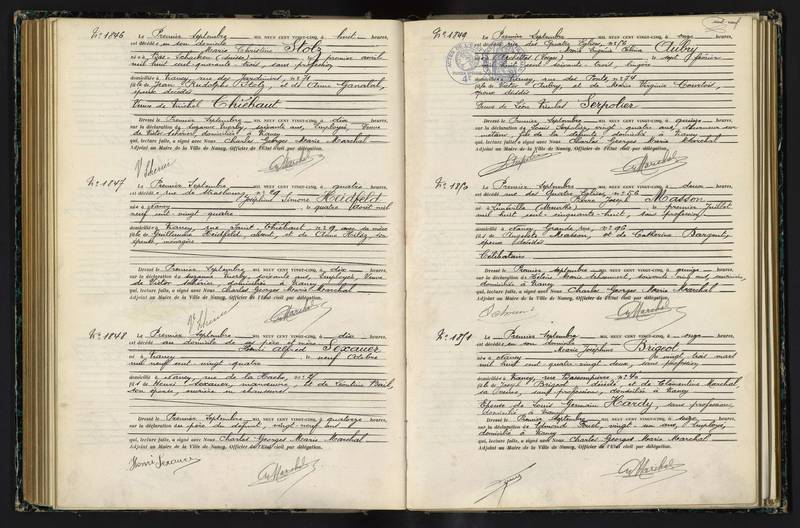 N° 1846
Le Premier Septembre MIL NEUF CENT VINGT-CINQ, à huit heures,
est décédée en son domicile
Marie Christine Stolz
née à (Suisse) le premier avril
mil huit cent quarante trois, sans profession
domiciliée à Nancy, rue des Jardiniers, n° 71
fille de Jean Rudolphe Stolz, et de Anne
époux décédés
Veuve de Michel Thiébaut
Dressé le Premier Septembre MIL NEUF CENT VINGT-CINQ, à dix heures,
sur la déclaration de Suzanne soixante ans, Employée, Veuve
de Victor domiciliée à Nancy
qui, lecture faite, a signé avec Nous Charles Georges Marie Marchal
Adjoint au Maire de la Ville de Nancy, Officier de l'État civil par délégation.
G Marchal
N° 1847
Le Premier Septembre MIL NEUF CENT VINGT-CINQ, à quatre heures,
est décédée rue de Strasbourg, n° 29
Joséphine Simone Hidfeld
née à Nancy le quatre Août mil
neuf cent vingt quatre
domiciliée à Nancy, rue Saint Thiébaut n° 9, avec sa mère
fille de Guillaume Hidfeld, absent, et de Anne son
épouse, ménagère
Dressé le Premier Septembre MIL NEUF CENT VINGT-CINQ, à dix heures,
sur la déclaration de Suzanne soixante ans, Employée, Veuve
de Victor domiciliée à Nancy
qui, lecture faite, a signé avec Nous Charles Georges Marie Marchal
Adjoint au Maire de la Ville de Nancy, Officier de l'État civil par délégation.
G Marchal
N° 1848
Le Premier Septembre MIL NEUF CENT VINGT-CINQ, à dix heures,
est décédé au domicile de ses père et mère
Henri Alfred Sexauer
né à Nancy le neuf Octobre
mil neuf cent vingt quatre
domicilié à Nancy, rue de la Hache, n°
fils de Henri Sexauer, manœuvre, et de Léontine
son épouse, ouvrière en chaussures
Dressé le Premier Septembre MIL NEUF CENT VINGT-CINQ, à quatorze heures,
sur la déclaration du père du défunt, vingt neuf ans
qui, lecture faite, a signé avec Nous Charles Georges Marie Marchal
Adjoint au Maire de la Ville de Nancy, Officier de l'État civil par délégation.
Henri Sexauer
G Marchal
N° 1849
Le Premier Septembre MIL NEUF CENT VINGT-CINQ, à onze heures,
est décédée rue des Quatre Eglises, n° 56
Marie Eugénie Céline Aubry
née à Archettes (Vosges) le sept février
mil huit cent soixante trois, lingère
domiciliée à Nancy, rue des Ponts, n° 74
fille de Victor Aubry, et de Marie Virginie Courtois,
époux décédés
Veuve de Léon Nicolas Serpolier
Dressé le Premier Septembre MIL NEUF CENT VINGT-CINQ, à quinze heures,
sur la déclaration de Louis Serpolier, vingt quatre ans,
fils de la défunte, domicilié à Nancy
qui, lecture faite, a signé avec Nous Charles Georges Marie Marchal
Adjoint au Maire de la Ville de Nancy, Officier de l'État civil par délégation.
G Marchal
N° 1850
Le Premier Septembre MIL NEUF CENT VINGT-CINQ, à deux heures,
est décédé rue des Quatre Eglises, n° 56
Pierre Joseph Masson
né à Lunéville (Meurthe) le premier Juillet
mil huit cent cinquante-huit, sans profession
domicilié à Nancy, Grande rue, n° 96
fils de Auguste Masson, et de Catherine Bargent,
époux décédés
Célibataire
Dressé le Premier Septembre MIL NEUF CENT VINGT-CINQ, à quinze heures,
sur la déclaration de Hélène Marie soixante neuf ans,
domiciliée à Nancy
qui, lecture faite, a signé avec Nous Charles Georges Marie Marchal
Adjoint au Maire de la Ville de Nancy, Officier de l'État civil par délégation.
G Marchal
N° 1851
Le Premier Septembre MIL NEUF CENT VINGT-CINQ, à onze heures,
est décédée en son domicile
Marie Joséphine Brigeot
née à Nancy le vingt trois mars
mil huit cent quatre vingt deux, sans profession
domiciliée à Nancy, rue Bassompierre, n°
fille de Brigeot, décédé, et de Clémentine Marchal,
sa Veuve, sans profession, domiciliée à Nancy
Epouse de Louis Germain Hardy, sans profession,
domicilié à Nancy
Dressé le Premier Septembre MIL NEUF CENT VINGT-CINQ, à seize heures,
sur la déclaration de Edmond vingt un ans, Employé,
domicilié à Nancy
qui, lecture faite, a signé avec Nous Charles Georges Marie Marchal
Adjoint au Maire de la Ville de Nancy, Officier de l'État civil par délégation.
G Marchal